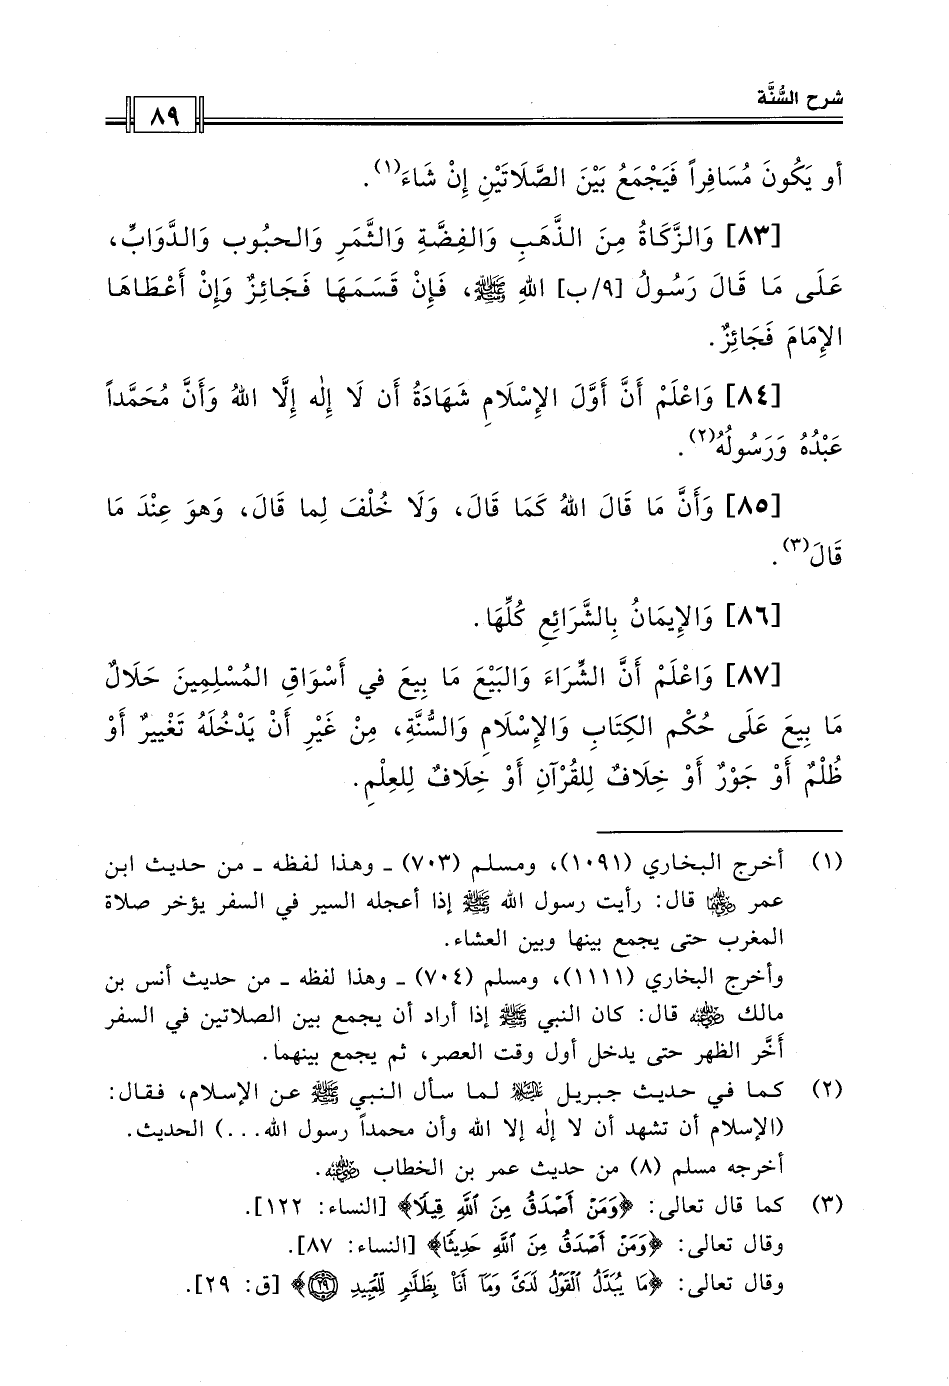 شرح السُّنَّة
٨٩
أو يَكُونَ مُسَافِراً فَيَجْمَعُ بَيْنَ الصَّلَاتَيْنِ إِنْ شَاءَ(١).
[٨٣] وَالزَّكَاةُ مِنَ الذَّهَبِ وَالفِضَّةِ وَالثَّمَرِ وَالحبُوب وَالدَّوَابِّ،
عَلَى مَا قَالَ رَسُولُ [٩/ب] اللهِ ﷺ، فَإِنْ قَسَمَهَا فَجَائِزٌ وَإِنْ أَعْطَاهَا
الإِمَامَ فَجَائِزٌ.
[٨٤] وَاعْلَمْ أَنَّ أَوَّلَ الإِسْلَامِ شَهَادَةُ أَن لَا إِلٰه إِلَّا اللهُ وَأَنَّ مُحَمَّداً
عَبْدُهُ وَرَسُولُهُ(٢).
[٨٥] وَأَنَّ مَا قَالَ اللهُ كَمَا قَالَ، وَلَا خُلْفَ لِما قَالَ، وَهوَ عِنْدَ مَا
قَالَ(٣).
[٨٦] وَالإِيمَانُ بِالشَّرَائِعِ كُلِّهَا.
[٨٧] وَاعْلَمْ أَنَّ الشِّرَاءَ وَالبَيْعَ مَا بِيعَ في أَسْوَاقِ المُسْلِمِينَ حَلَالٌ
مَا بِيعَ عَلَى حُكْم الكِتَابِ وَالإِسْلَامِ وَالسُّنَّةِ، مِنْ غَيْرِ أَنْ يَدْخُلَهُ تَغْيِيرٌ أَوْ
ظُلْمٌ أَوْ جَوْرٌ أَوْ خِلَافٌ لِلقُرْآنِ أَوْ خِلَافٌ لِلعِلْمِ.
(١) أخرج البخاري (١٠٩١)، ومسلم (٧٠٣) ـ وهذا لفظه ـ من حديث ابن
عمر رضي الله عنهما قال: رأيت رسول الله ﷺ إذا أعجله السير في السفر يؤخر صلاة
المغرب حتى يجمع بينها وبين العشاء.
وأخرج البخاري (١١١١)، ومسلم (٧٠٤) ـ وهذا لفظه ـ من حديث أنس بن
مالك رضي الله عنه قال: كان النبي ﷺ إذا أراد أن يجمع بين الصلاتين في السفر
أخَّر الظهر حتى يدخل أول وقت العصر، ثم يجمع بينهما.
(٢) كما في حديث جبريل عليه السلام لما سأل النبي ﷺ عن الإسلام، فقال:
(الإسلام أن تشهد أن لا إلٰه إلا الله وأن محمداً رسول الله...) الحديث.
أخرجه مسلم (٨) من حديث عمر بن الخطاب رضي الله عنه.
(٣) كما قال تعالى: ﴿وَمَنْ أَصْدَقُ مِنَ ٱللَّهِ قِيلًا﴾ [النساء: ١٢٢].
وقال تعالى: ﴿وَمَنْ أَصْدَقُ مِنَ ٱللَّهِ حَدِيثًا﴾ [النساء: ٨٧].
وقال تعالى: ﴿مَا يُبَدَّلُ ٱلْقَوْلُ لَدَىَّ وَمَآ أَنَا۠ بِظَلَّٰمٍ لِّلْعَبِيدِ ٢٩﴾ [ق: ٢٩].